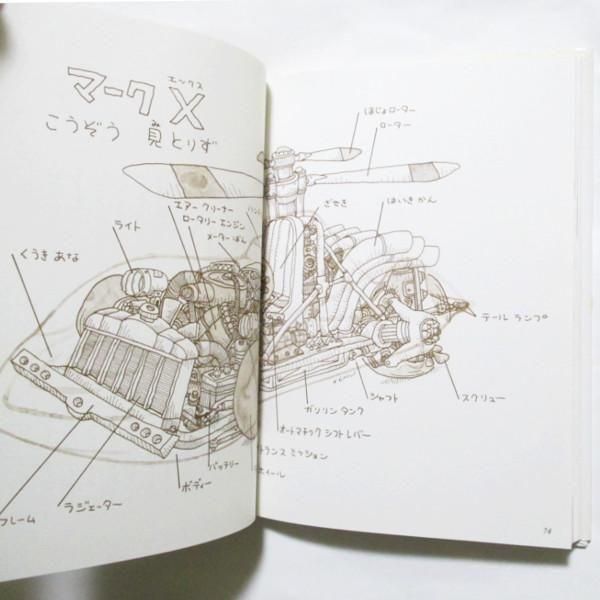 エックス
マークX
み
こうぞう 見とりず
エアー クリーナー
ロータリー エンジン
メーターばん
ライト
くうき あな
フレーム
ラジエーター
ボディー
バッテリー
ホイール
トランス ミッション
はじょローター
ローター
ざせき
はいき かん
テール ランプ
スクリュー
シャフト
ガソリン タンク
オートマチック シフト レバー
74